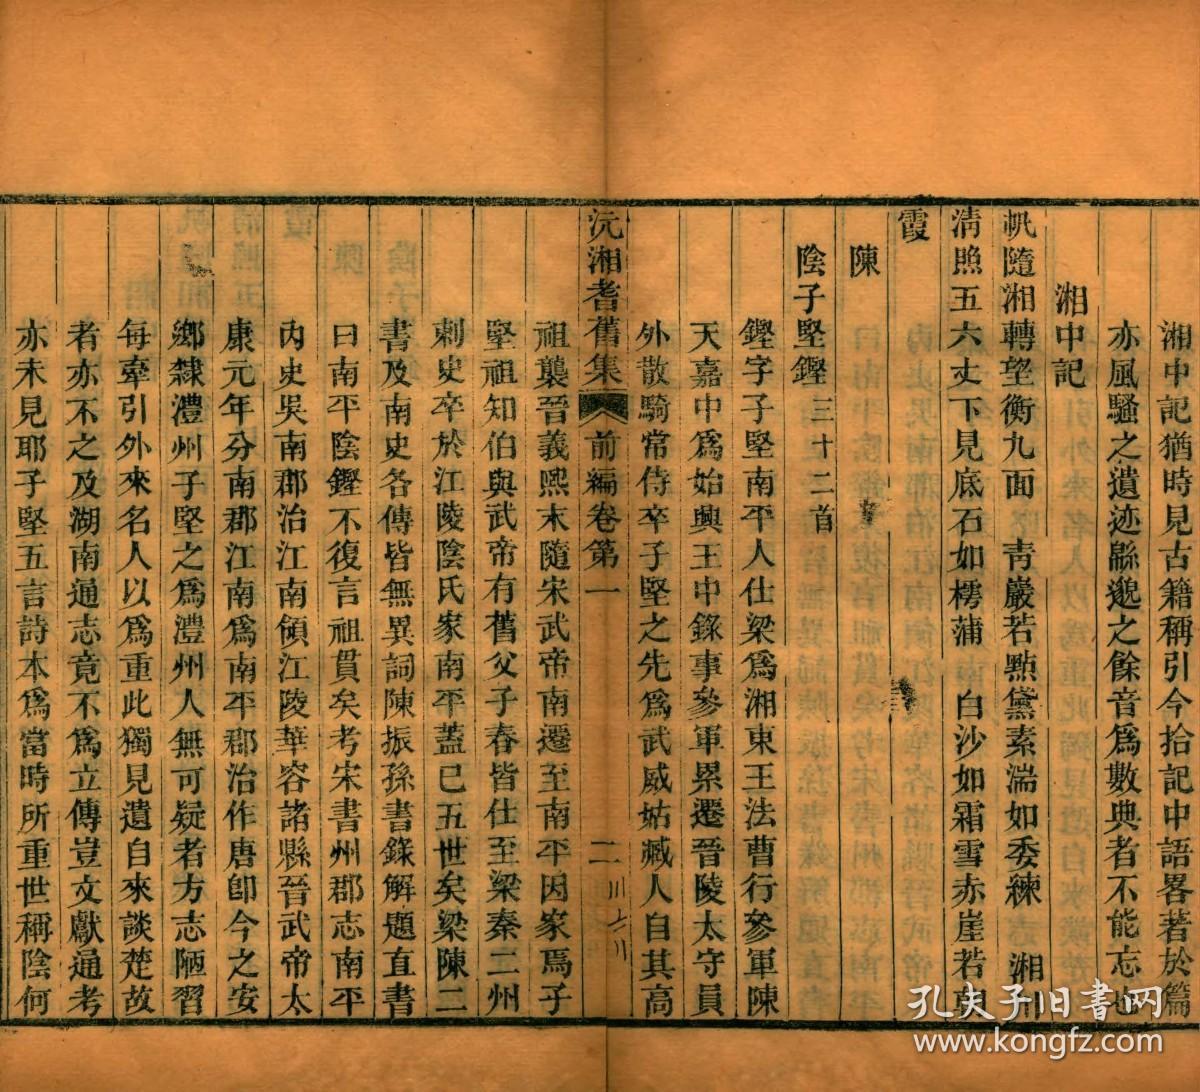 湘中記猶時見古籍稱引今拾記中語畧著於篇
亦風騷之遺迹緜邈之餘音爲數典者不能忘也
湘中記
帆隨湘轉望衡九面　靑巖若點黛素湍如委練　湘川
清照五六丈下見底石如樗蒲　白沙如霜雪赤崖若朝
霞
陳
陰子堅鏗三十二首
鏗字子堅南平人仕梁爲湘東王法曹行參軍陳
天嘉中爲始興王中錄事參軍累遷晉陵太守員
外散騎常侍卒子堅之先爲武威姑臧人自其高
沅湘耆舊集　前編卷第一　二
祖襲晉義熙末隨宋武帝南遷至南平因家焉子
堅祖知伯與武帝有舊父子春皆仕至梁秦二州
刺史卒於江陵陰氏家南平蓋已五世矣梁陳二
書及南史各傳皆無異詞陳振孫書錄解題直書
曰南平陰鏗不復言祖貫矣考宋書州郡志南平
內史吳南郡治江南領江陵華容諸縣晉武帝太
康元年分南郡江南爲南平郡治作唐卽今之安
鄉隸澧州子堅之爲澧州人無可疑者方志陋習
每牽引外來名人以爲重此獨見遺自來談楚故
者亦不之及湖南通志竟不爲立傳豈文獻通考
亦未見耶子堅五言詩本爲當時所重世稱陰何
孔夫子旧书网
www.kongfz.com